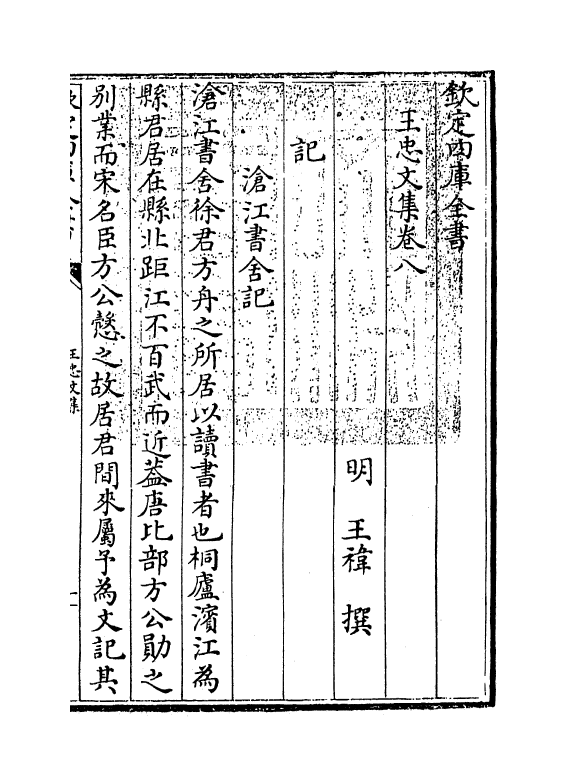 欽定四庫全書
王忠文集卷八
明 王禕 撰
記
滄江書舍記
滄江書舍徐君方舟之所居以讀書者也桐廬濱江為
縣君居在縣北距江不百武而近葢唐比部方公勛之
别業而宋名臣方公慤之故居君間來屬予為文記其
王忠文集